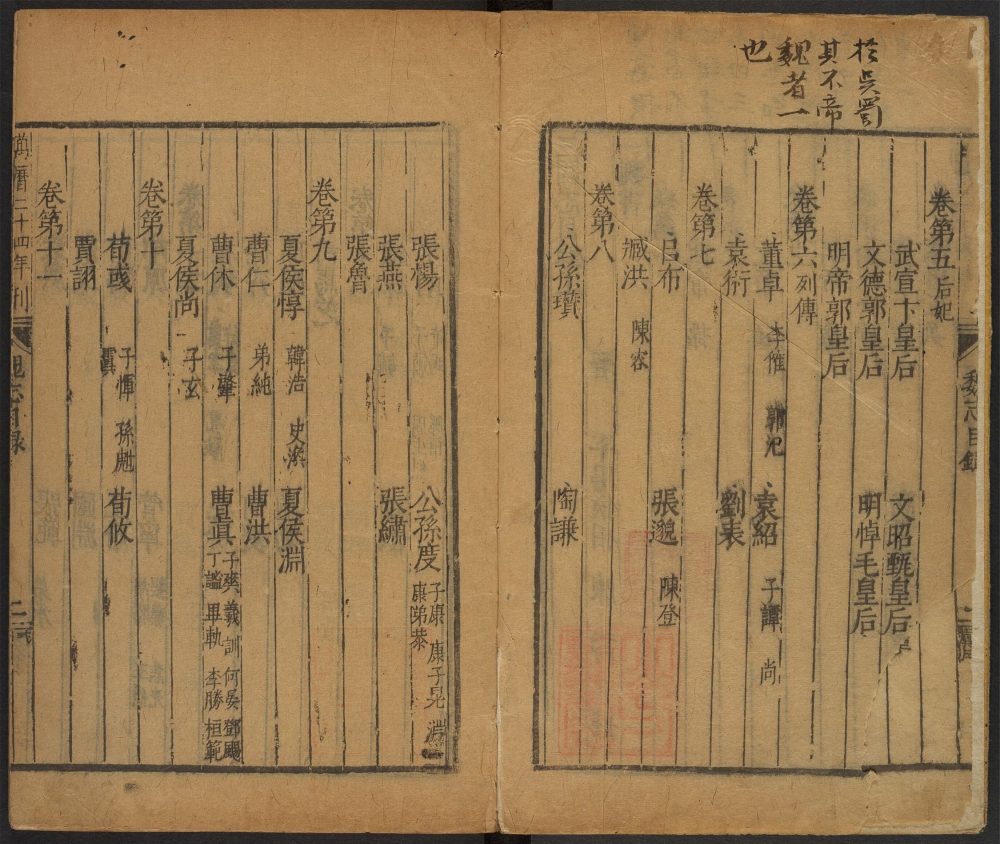 於吳蜀
其不帝
魏者一
也
卷第五 后妃
武宣卞皇后 文昭甄皇后
文德郭皇后 明悼毛皇后
明帝郭皇后
卷第六 列傳
董卓 李傕 郭汜 袁紹 子譚 尚
袁術 劉表
卷第七
呂布 張邈 陳登
臧洪 陳容
卷第八
公孫瓚 陶謙
魏志目錄
二
張楊 公孫度 子康 康弟恭 康子晃 淵
張燕 張繡
張魯
卷第九
夏侯惇 韓浩 史渙 夏侯淵
曹仁 弟純 曹洪
曹休 子肇 曹真 子爽 羲 訓 何晏 鄧颺 丁謐 畢軌 李勝 桓範
夏侯尚 子玄
卷第十
荀彧 子惲 孫甝 霬 荀攸
賈詡
卷第十一
萬曆二十四年刊
魏志目錄
二